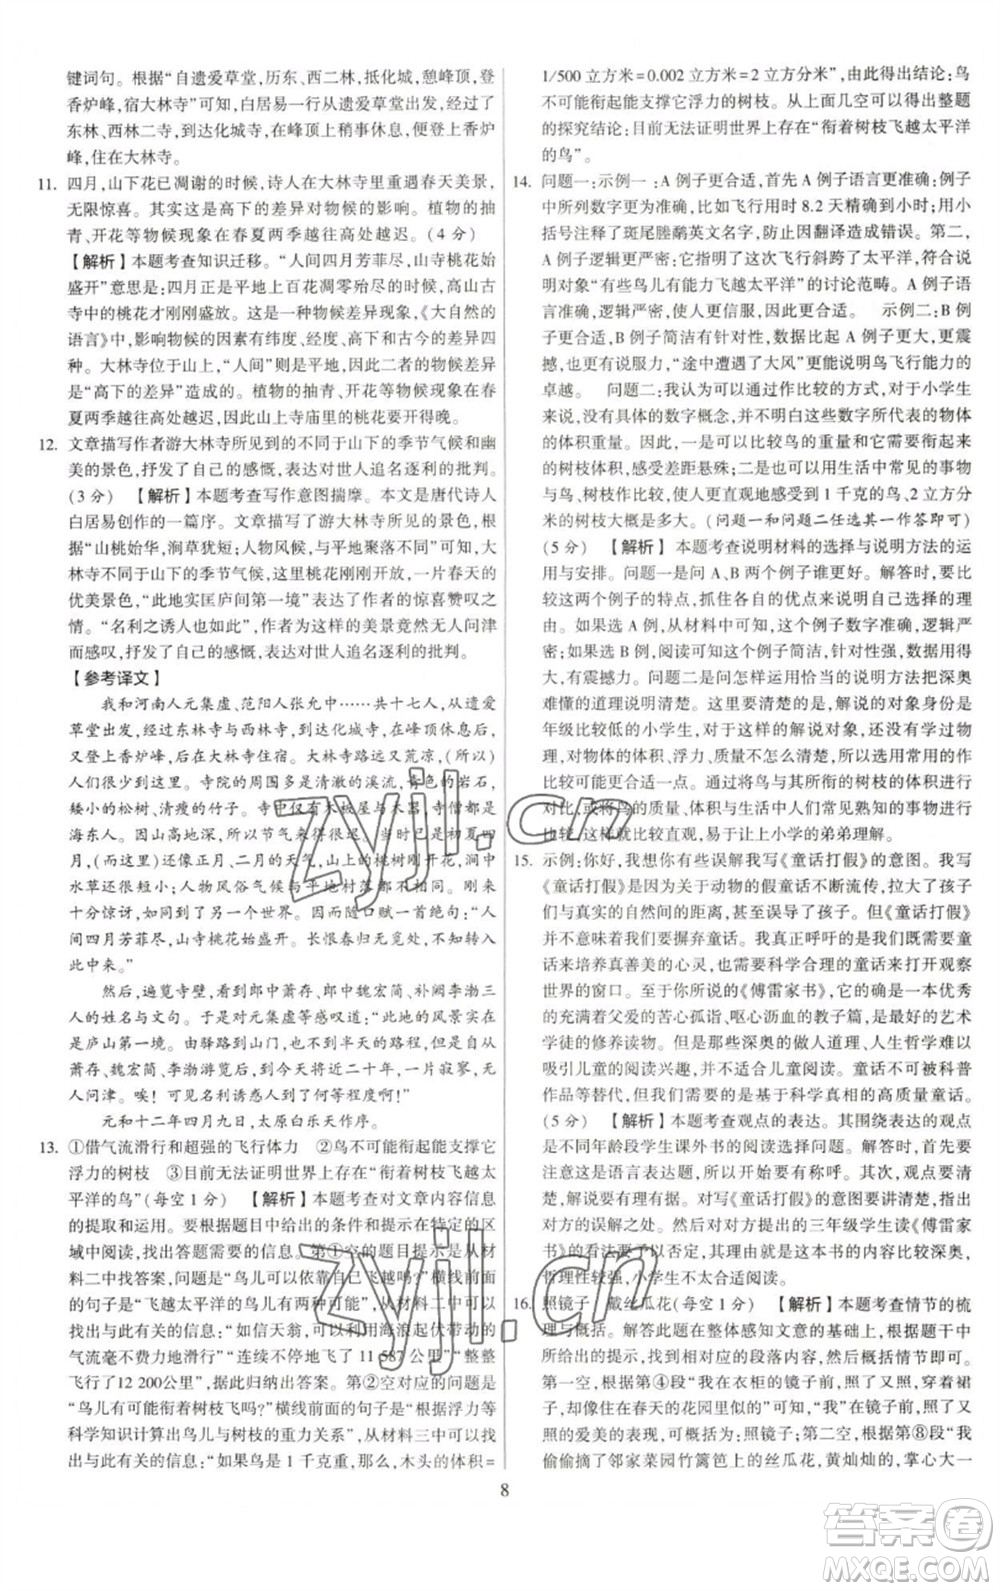 键词句。根据“自遗爱草堂,历东、西二林,抵化城,憩峰顶,登
香炉峰,宿大林寺”可知,白居易一行从遗爱草堂出发,经过了
东林、西林二寺,到达化城寺,在峰顶上稍事休息,登上香炉
峰,住在大林寺。
11. 四月,山下花已凋谢的时候,诗人在大林寺里重遇春天美景,
无限惊喜。其实这是高下的差异对物候的影响。植物的抽
青、开花等物候现象在春夏两季越往高处越迟。(4 分)
【解析】本题考查知识迁移。“人间四月芳菲尽,山寺桃花始
盛开”意思是:四月正是平地上百花凋零殆尽的时候,高山古
寺中的桃花才刚刚盛放。这是一种物候差异现象,《大自然的
语言》中,影响物候的因素有纬度、经度、高下的差异、古今四
种。大林寺位于山上,“人间”则是平地,因此二者的物候差异
是“高下的差异”造成的。植物的抽青、开花等物候现象在春
夏两季越往高处越迟,因此山上寺庙里的桃花要开得晚。
12. 文章描写作者游大林寺所见到的不同于山下的季节气候和幽
美的景色,抒发了自己的感慨,表达对世人追名逐利的批判。
(3 分) 【解析】本题考查写作意图揣摩。本文是唐代诗人
白居易创作的一篇序。文章描写了游大林寺所见的景色,
如“山桃始华,涧草犹短;人物风候,与平地聚落不同”表达大
林寺不同于山下的季节气候,这里桃花刚刚开放,一片春天的
优美景色,“此地实匡庐间第一境”表达了作者的惊喜赞叹之
情。“名利之诱人也如此”,作者为这样的美景竟然无人问津
而感叹,抒发了自己的感慨,表达对世人追名逐利的批判。
【参考译文】
我和河南人元集虚、范阳人张允中……共十七人,从遗爱
草堂出发,经过东林寺与西林寺,到达化城寺,在峰顶休息,
又登上香炉峰,在大林寺住宿。大林寺路远又荒凉,(所以)
人们很少到达这里。寺院的周围多是清澈的溪流,青色的岩石,
矮小的松树、清瘦的竹子。寺中仅有木板屋与木器,寺僧都是
海东人。因山高地深,所以节气很晚,当时已经是初夏
孟夏,还好像正月、二月的天气,山上的桃树刚刚开花,涧中
水草还很短;人们感受到的风物气候,与平地村落不同。刚来
十分惊讶,好像来到另一世界。因而随口赋一首绝句:“人
间四月芳菲尽,山寺桃花始盛开。长恨春归无觅处,不知转入
此中来。”
然后,遍览寺壁,看到郎中萧存、郎中魏宏简、补阙李渤三
人的姓名与文句。于是对元集虚等人感叹:“此地的风景实
在是庐山第一境。由驿路到山门,也不到半天的路程,自从
萧存、魏宏简、李渤游览后,到现在将近二十年,一直寂静无人
到这里。唉!可见名利诱惑人到了何等程度啊!”
元和十二年四月九日,太原白乐天作序。
13. ①借气流滑行和超强的飞行体力 ②鸟不可能衔起能支撑它
浮力的树枝 ③目前无法证明世界上存在“衔着树枝飞越太
平洋的鸟”(每空 1 分) 【解析】本题考查对文章内容信息
的提取和运用。要根据题目中给出的条件和提示在特定的区
域中阅读,找出答题需要的信息。第①空的题目提示是从材
料二中找答案,问题是“鸟儿可以依靠自己飞越吗?”横线前面
的句子是“飞越太平洋的鸟儿有两种可能”,从材料二中可以
找出与此相关的句子:“如信天翁,可以利用海浪起伏带动的
气流毫不费力地滑行”“连续不停地飞行了 11 587 公里”“整整
飞行了12 200公里”,据此归纳出答案。第②空对应的问题是
“鸟儿有可能衔着树枝飞吗?”横线前面的句子是“通过力学等
科学知识计算出鸟儿与树枝的重力关系”,从材料三中可以找
出与此相关的句子:“如果鸟是 1 千克重,那么,木头的体积=
1/500 立方米=0.002 立方米=2 立方分米”,由此得出结论:鸟
不可能衔起能支撑它浮力的树枝。从上面几空可以得出整题
的探究结论:目前无法证明世界上存在“衔着树枝飞越太平洋
的鸟”。
14. 问题一:示例一:A 例子更合适,首先 A 例子语言更准确:例子
中所列数字更为准确,比如飞行用时 8.2 天精确到小时;用小
括号注释了斑尾塍鹬英文名字,防止因翻译造成错误。第二,
A 例子逻辑更严密:这次飞行斜跨了太平洋,符合文中规定的
说明对象“有些鸟儿有能力飞越太平洋”的讨论范畴。A 例子
优点准确、逻辑严密,使人更信服,因此更合适。 示例二:B
例子更合适,B 例子简洁有针对性,数字上比起 A 例子更大,更
震撼,也更有说服力,“途中遭遇了大风”更能说明鸟飞行能力的
卓越。 问题二:我认为可以采用作比较的方式,对于小学生
来说,没有具体的数字概念,并不能很好地了解数字代表的物体
的体积重量。第一,可以通过比较鸟的体积重量和能承载起它
的树枝体积重量,显示差距悬殊;二是可以用日常常见的事物
与鸟、树枝的体积作比较,让人更直观地感受到1 千克的鸟、2 立方分
米的树枝大概是多大。(问题一和问题二任选其一作答即可)
(5 分) 【解析】本题考查说明材料的选择与说明方法的运
用与安排。问题一是问 A、B两个例子谁更好。解答时,要比
较两个例子的特点,抓住各自的优点来说明自己选择的理
由。如果选 A 例,从材料中可知,这个例子数字准确,逻辑严
密;如果选 B 例,阅读材料可知,这个例子简洁,针对性强,数字
大,有震撼力。问题二是问怎样运用恰当的说明方法把深奥
难懂的道理说明清楚。本题要注意的是解说的对象身份是三
年级阶段的小学生,对于这样的解说对象,还没有学过物
理,对物体的体积、浮力、质量不怎么清楚,所以采用常用的作
比较可能更合适一点。通过将鸟与其所衔的树枝的体积进行
对比,或将鸟的质量、体积与生活中人们常见熟知的事物进行
比较,这样就比较直观,易于让上小学的弟弟理解。
15. 示例:你好,我想你有些误解我写《童话打假》的意图。我写
《童话打假》是因为关于动物的假童话不断流传,拉大了孩子
们与真实的自然间的距离,甚至误导了孩子。但《童话打假》
并不意味着我们要摒弃童话。我真正呼吁的是,我们需要童
话来培养真善美的心灵,更需要科学合理的童话打开观察
世界的窗口。至于你向我提及的《傅雷家书》,作为一本优秀
的充满父爱的苦心孤诣、呕心沥血的教子篇,是最好的艺术
学徒的修养读物。但是那些深奥的做人道理、人生哲学难以
吸引儿童的阅读兴趣,并不太适合儿童阅读。它可以被科普
作品等替代。同时,我们需要基于科学真相的高质量童话。
(5 分) 【解析】本题考查观点的表达。其围绕表达的观点
是不同年龄阶段学生课外书的阅读选择方法。解答时要
注意这是语言表达题,所以开始时要有称呼。其次要站在作
者的角度思考问题。然后,对写《童话打假》的意图要讲清楚,指出
对方的误解之处。最后,对对方提出的三年级学生读《傅雷家
书》的看法要予以否定,可以从这本书的内容比较深奥,
哲理性较强,小学生不太合适阅读。
16. 照镜子 戴丝瓜花(每空 1 分) 【解析】本题考查情节的梳
理与概括。解答此题要在整体感知文意的基础上,根据题干中
所给的情节,找到相关的段落内容,然后概括情节即可。
第一空,根据第④段“我在衣柜的镜子前,照了又照,穿着裙
子,觉得自己像个春天的花园似的”可知,“我”在镜子前,照出了
我的爱美的表现,可概括为:照镜子;第二空,根据第⑧段“我
偷偷摘了邻家菜园竹篱笆上的丝瓜花,黄灿灿的,掌心大一
8
zyjl.cn
zyjl.cn
答案圈
MXQE.COM